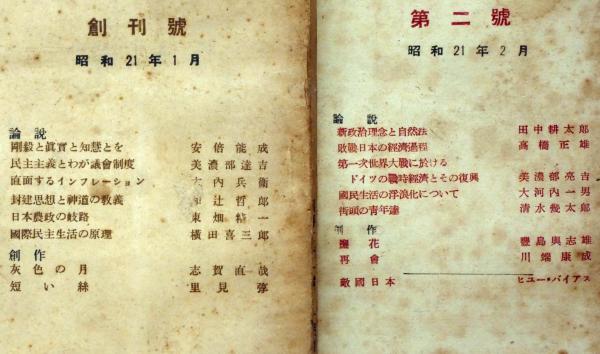 創刊號
昭和21年1月
論説
剛毅と眞實と知慧とを 安倍能成
民主主義とわが議會制度 美濃部達吉
直面するインフレーション 大內兵衞
封建思想と神道の敎義 和辻哲郎
日本農政の岐路 東畑精一
國際民主生活の原理 橫田喜三郎
創作
灰色の月 志賀直哉
短い絲 里見弴
第二號
昭和21年2月
論説
新政治理念と自然法 田中耕太郎
敗戰日本の經濟過程 高橋正雄
第一次世界大戰に於ける
ドイツの戰時經濟とその復興 美濃部亮吉
國民生活の浮浪化について 大河內一男
街頭の靑年達 淸水幾太郎
創作
撫花 豐島與志雄
再會 川端康成
敵國日本 ヒユー・バイアス